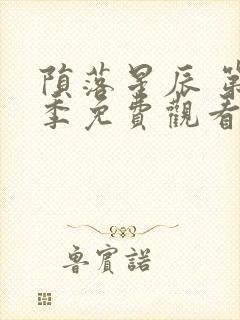 隕落星辰 第
季免費觀看
魯賓諾